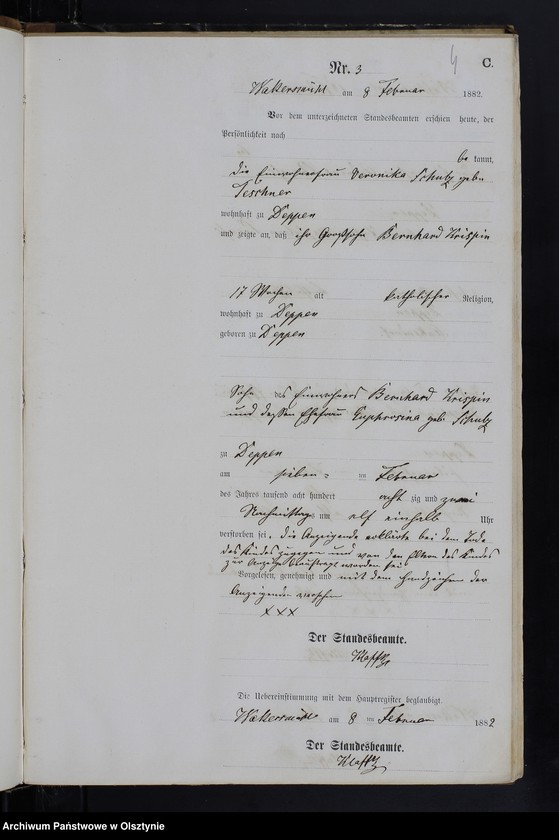 4
C.
Nr. 3
Waltersmühl am 8 Februar 1882.
Vor dem unterzeichneten Standesbeamten erschien heute, der
Persönlichkeit nach
be kannt,
die Einwohnerfrau Veronika Schulz geb.
Teschner
wohnhaft zu Deppen
und zeigte an, daß ihr Großsohn Bernhard Krispin
17 Wochen alt katholischer Religion,
wohnhaft zu Deppen
geboren zu Deppen
Sohn des Einwohners Bernhard Krispin
und dessen Ehefrau Euphrosina geb. Schulz
zu Deppen
am sieben = ten Februar
des Jahres tausend acht hundert acht zig und zwei
Nachmittags um elf einhalb Uhr
verstorben sei. Die Anzeigende erklärte bei dem Tode
des Kindes zugegen und von den Eltern des Kindes
zur Anzeige beauftragt worden sei
Vorgelesen, genehmigt und mit dem Handzeichen der
Anzeigenden versehen
XXX
Der Standesbeamte.
Die Uebereinstimmung mit dem Hauptregister beglaubigt.
Waltersmühl am 8 ten Februar 1882
Der Standesbeamte.
Archiwum Państwowe w Olsztynie